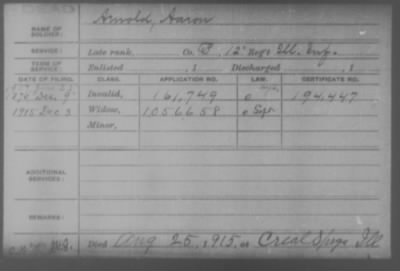 DEAD
NAME OF SOLDIER: Arnold, Aaron
SERVICE: Late rank, Co. B, 12" Reg't Ill. Inf.
TERM OF SERVICE: Enlisted , 1 Discharged , 1
DATE OF FILING. CLASS. APPLICATION NO. LAW. CERTIFICATE NO.
Dec. 9 Invalid, 161,749 194,447
1915 Dec 3 Widow, 1056658
Minor,
ADDITIONAL SERVICES:
REMARKS:
Died Aug 25, 1915, at Creal Spgs Ill